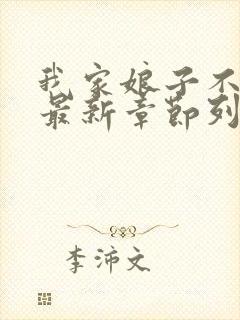 我家娘子不
最新章節列
李沛文